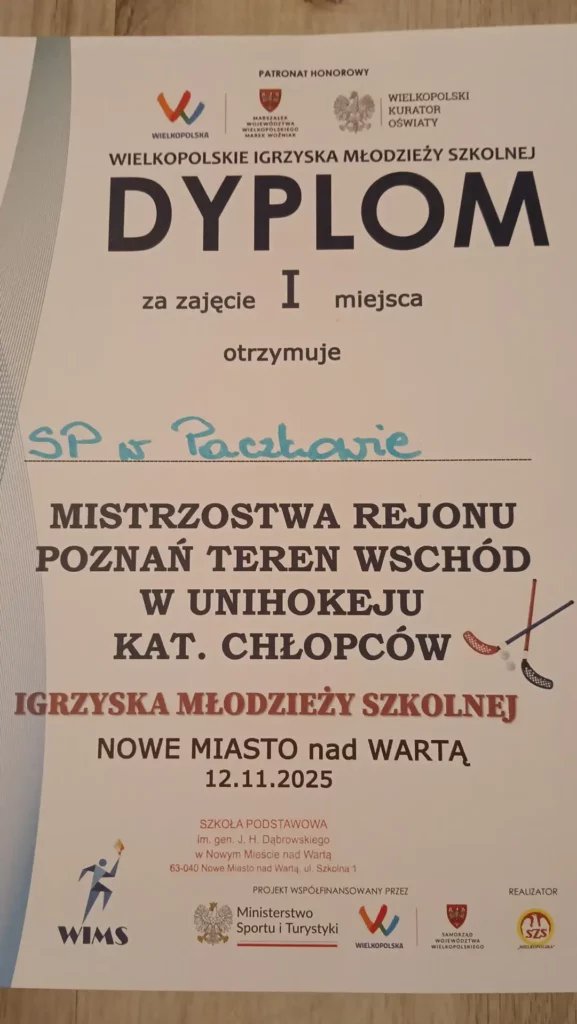 PATRONAT HONOROWY
WIELKOPOLSKA
MARSZAŁEK
WOJEWÓDZTWA
WIELKOPOLSKIEGO
MAREK WOŹNIAK
WIELKOPOLSKI
KURATOR
OŚWIATY
WIELKOPOLSKIE IGRZYSKA MŁODZIEŻY SZKOLNEJ
DYPLOM
za zajęcie I miejsca
otrzymuje
SP w Paczkowie
MISTRZOSTWA REJONU
POZNAŃ TEREN WSCHÓD
W UNIHOKEJU
KAT. CHŁOPCÓW
IGRZYSKA MŁODZIEŻY SZKOLNEJ
NOWE MIASTO nad WARTĄ
12.11.2025
SZKOŁA PODSTAWOWA
im. gen. J. H. Dąbrowskiego
w Nowym Mieście nad Wartą
63-040 Nowe Miasto nad Wartą, ul. Szkolna 1
PROJEKT WSPÓŁFINANSOWANY PRZEZ
REALIZATOR
WIMS
Ministerstwo
Sportu i Turystyki
WIELKOPOLSKA
SAMORZĄD
WOJEWÓDZTWA
WIELKOPOLSKIEGO
SZS
"WIELKOPOLSKA"